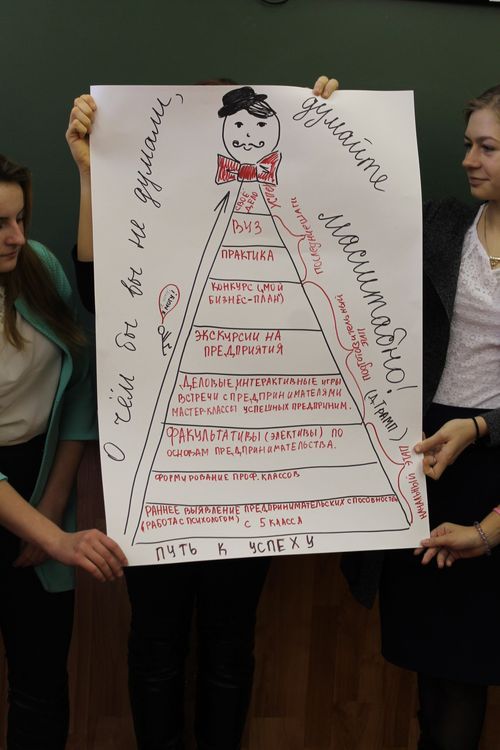 О чём бы вы не думали,
думайте
масштабно!
(Д. Трамп)
СВОЕ ДЕЛО
УСПЕХ
ВУЗ
ПРАКТИКА
КОНКУРС („МОЙ
БИЗНЕС-ПЛАН)
ЭКСКУРСИИ НА
ПРЕДПРИЯТИЯ
ДЕЛОВЫЕ, ИНТЕРАКТИВНЫЕ ИГРЫ
ВСТРЕЧИ С ПРЕДПРИНИМАТЕЛЯМИ
МАСТЕР-КЛАССЫ УСПЕШНЫХ ПРЕДПРИНИМ.
ФАКУЛЬТАТИВЫ (ЭЛЕКТИВЫ) ПО
ОСНОВАМ ПРЕДПРИНИМАТЕЛЬСТВА.
ФОРМИРОВАНИЕ ПРОФ. КЛАССОВ
РАННЕЕ ВЫЯВЛЕНИЕ ПРЕДПРИНИМАТЕЛЬСКИХ СПОСОБНОСТЕЙ
(РАБОТА С ПСИХОЛОГОМ) С 5 КЛАССА
НАЧАЛЬНЫЙ ЭТАП
ПУТЬ К УСПЕХУ